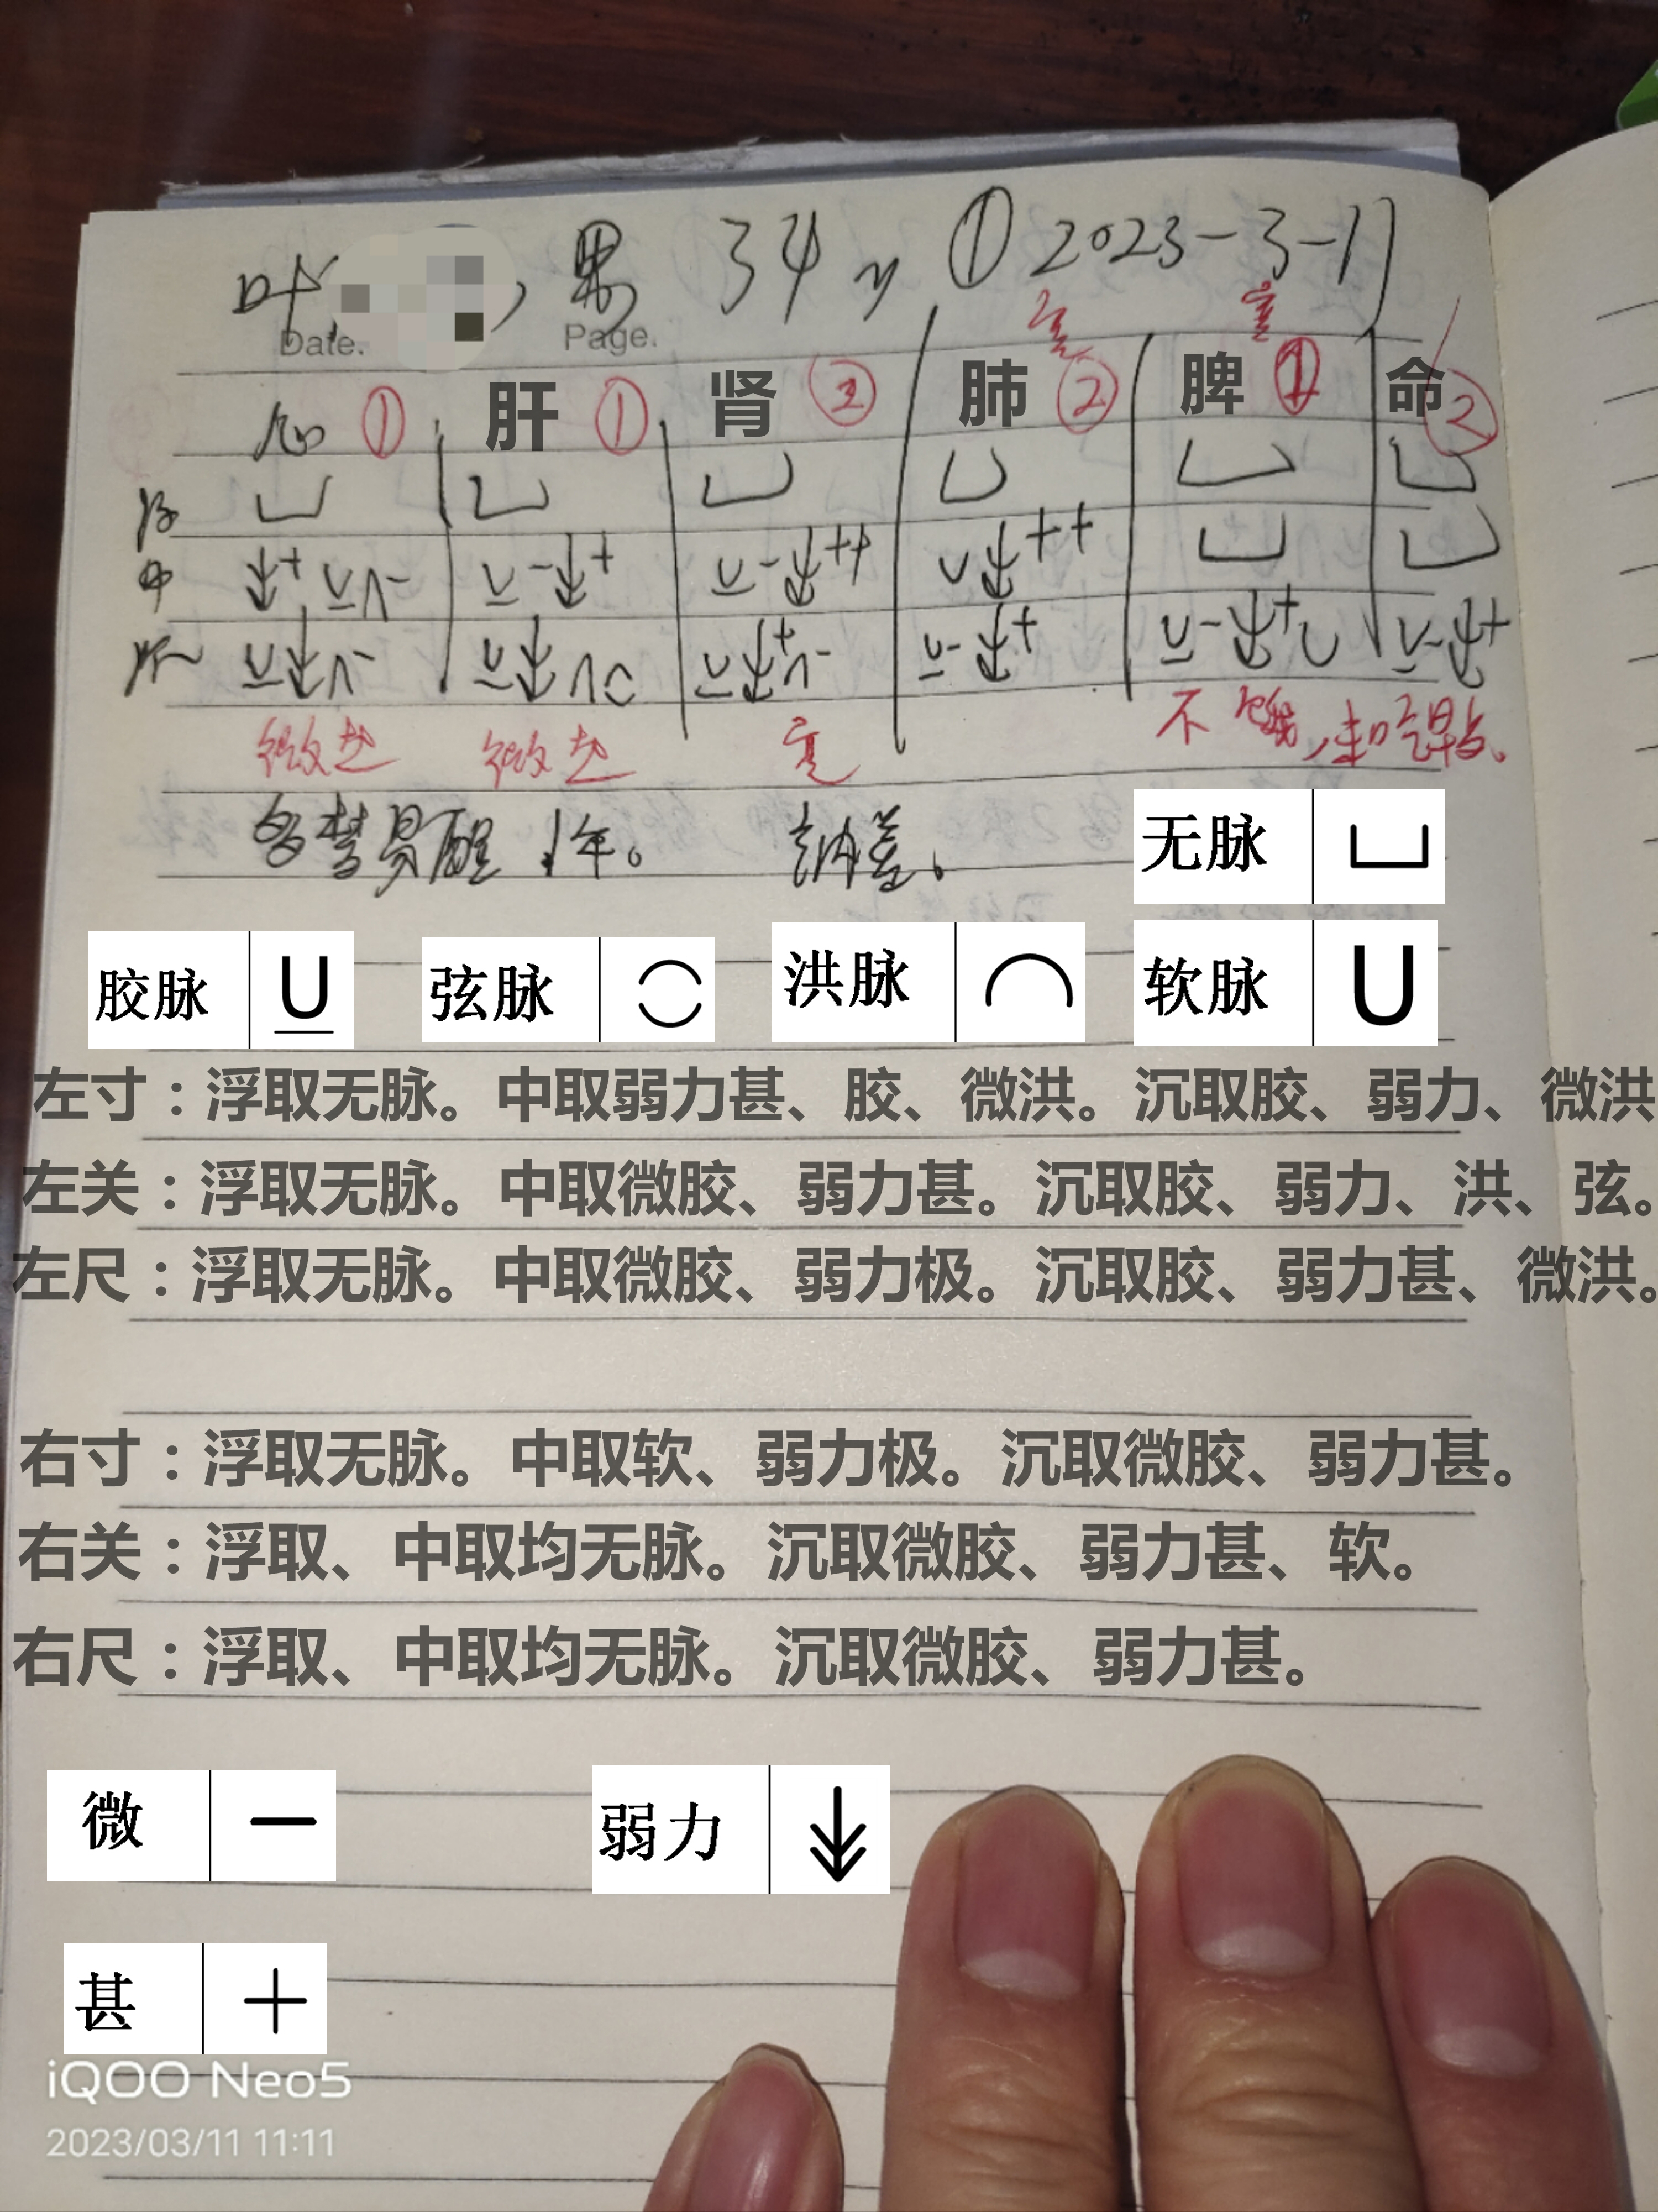 叶 , 男 34y ① 2023-3-11
Date. Page.
心 ① 肝 ① 肾 ② 肺 ② 脾 ① 命 ②
浮
中 + - - + - ++ ++
沉 - + - - + - + - +
微 微 不饿,
多梦易醒1年。 纳差。
无脉
胶脉 弦脉 洪脉 软脉
左寸：浮取无脉。中取弱力甚、胶、微洪。沉取胶、弱力、微洪
左关：浮取无脉。中取微胶、弱力甚。沉取胶、弱力、洪、弦。
左尺：浮取无脉。中取微胶、弱力极。沉取胶、弱力甚、微洪。
右寸：浮取无脉。中取软、弱力极。沉取微胶、弱力甚。
右关：浮取、中取均无脉。沉取微胶、弱力甚、软。
右尺：浮取、中取均无脉。沉取微胶、弱力甚。
微 — 弱力
甚 +
iQOO Neo5
2023/03/11 11:11